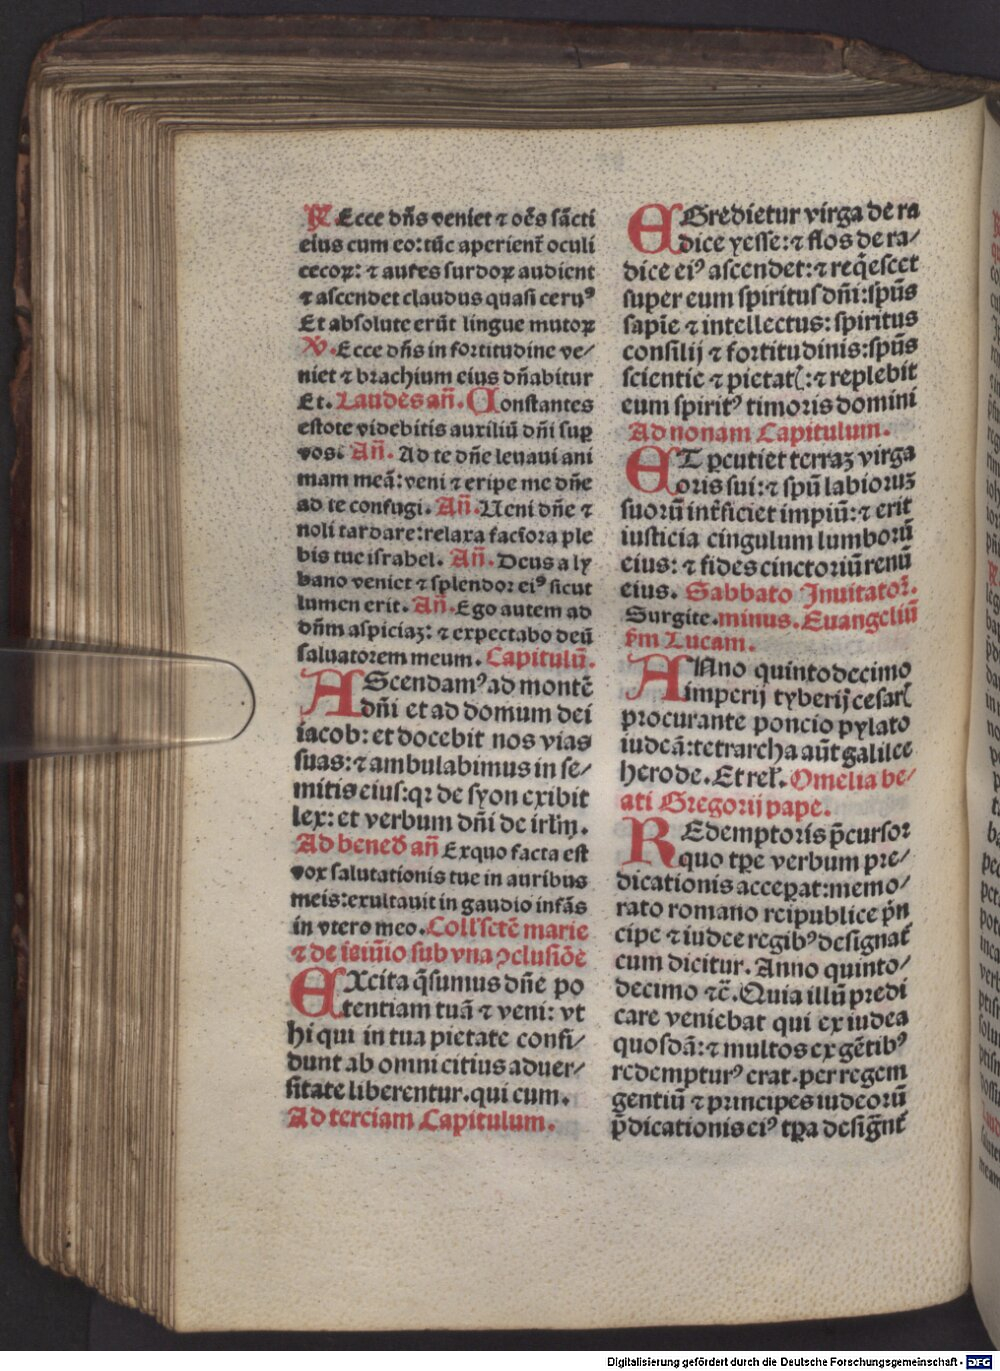 ℟. Ecce dn̄s veniet ⁊ oēs sācti
eius cum eo: tūc aperient̄ oculi
cecoꝝ: ⁊ autes surdoꝝ audient
⁊ ascendet claudus quasi ceruꝰ
Et absolute erūt lingue mutoꝝ
℣. Ecce dn̄s in fortitudine ve/
niet ⁊ brachium eius dn̄abitur
Et. Laudes an̄. Constantes
estote videbitis auxiliū dn̄i suꝑ
vos: An̄. Ad te dn̄e leuaui ani
mam meā: veni ⁊ eripe me dn̄e
ad te confugi. An̄. Ueni dn̄e ⁊
noli tardare: relaxa faciora ple
bis tue israhel. An̄. Deus a ly
bano veniet ⁊ splendor eiꝰ sicut
lumen erit. An̄. Ego autem ad
dn̄m aspiciaꝫ: ⁊ expectabo deū
saluatorem meum. Capitulū.
AScendamꝰ ad montē
dn̄i et ad domum dei
iacob: et docebit nos vias
suas: ⁊ ambulabimus in se/
mitis eius: qꝛ de syon exibit
lex: et verbum dn̄i de irl̄m.
Ad bened̄ an̄ Ex quo facta est
vox salutationis tue in auribus
meis: exultauit in gaudio infās
in vtero meo. Coll' sctē marie
⁊ de ieiūio sub vna ꝯclusiōe
EXcita q̄sumus dn̄e po
tentiam tuā ⁊ veni: vt
hi qui in tua pietate confi/
dunt ab omni citius aduer/
sitate liberentur. qui cum.
Ad terciam Capitulum.
EGredietur virga de ra
dice yesse: ⁊ flos de ra/
dice eiꝰ ascendet: ⁊ req̄escet
super eum spiritus dn̄i: spūs
sapīe ⁊ intellectus: spiritus
consilij ⁊ fortitudinis: spūs
scientie ⁊ pietatꝭ: ⁊ replebit
eum spiritꝰ timoris domini
Ad nonam Capitulum.
ET ꝑcutiet terraꝫ virga
oris sui: ⁊ spū labioruꝫ
suorū int̄ficiet impiū: ⁊ erit
iusticia cingulum lumborū
eius: ⁊ fides cinctoriū renū
eius. Sabbato Inuitatoꝛ̄.
Surgite. minus. Euangeliū
s̄m Lucam.
ANno quintodecimo
imperij tyberij cesarꝭ
procurante poncio pylato
iudeā: tetrarcha aūt galilee
herode. Et rel'. Omelia be/
ati Gregorij pape.
REdemptoris p̄cursoꝛ
quo tꝑe verbum pre/
dicationis acceꝑat: memo/
rato romano reipublice p̄n
cipe ⁊ iudee regibꝰ designat̄
cum dicitur. Anno quinto/
decimo ⁊c̄. Quia illū predi
care veniebat qui ex iudea
quosdā: ⁊ multos ex gētibꝰ
redempturꝰ erat. per regem
gentiū ⁊ principes iudeorū
p̄dicationis eiꝰ tꝑa desiḡnt̄
Digitalisierung gefördert durch die Deutsche Forschungsgemeinschaft - DFG